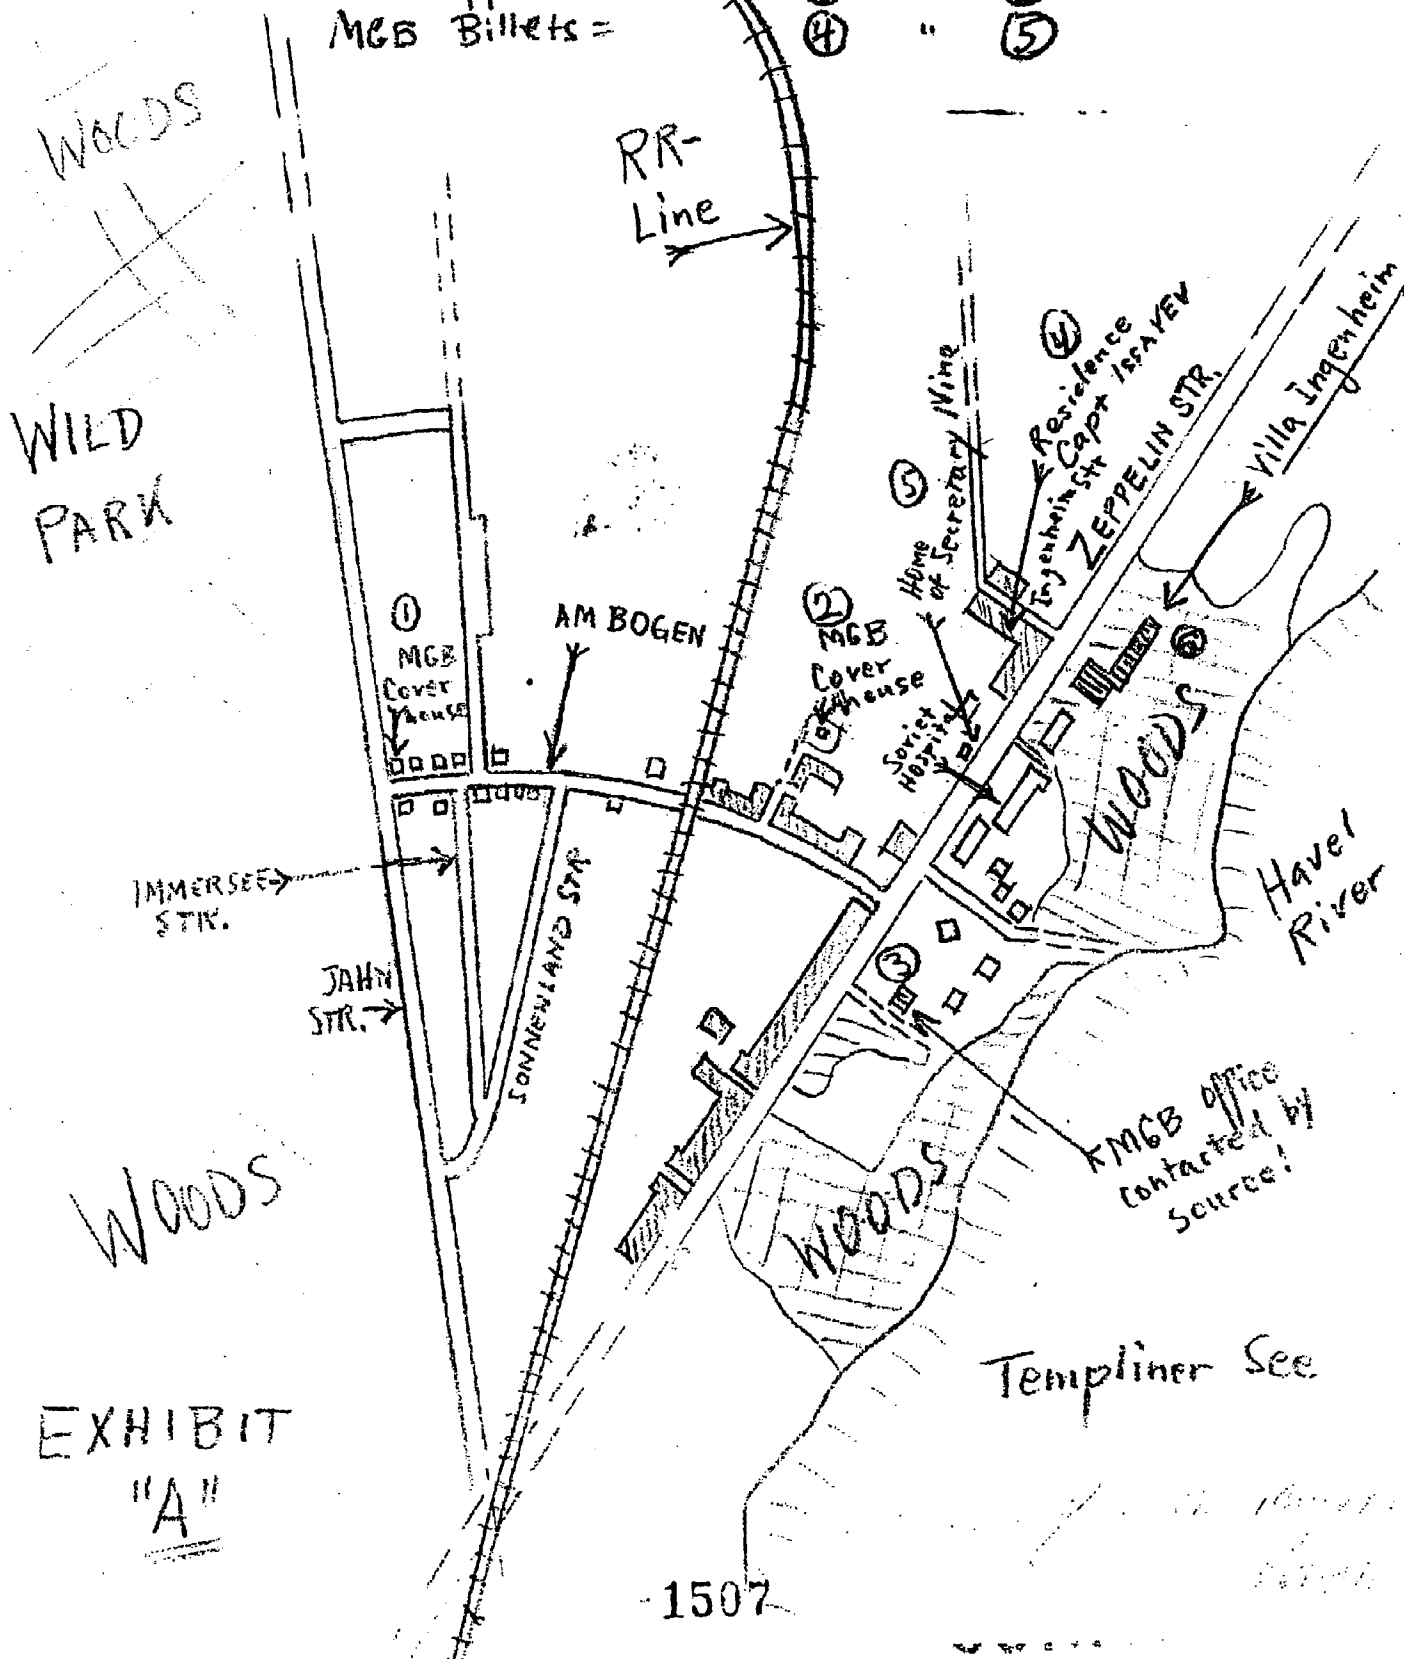 MGB Billets =
④ " ⑤
WOODS
RR-
Line
WILD
PARK
④
Residence
Capt ISSAYEV
Ingenheim Str
ZEPPELIN STR.
Villa Ingenheim
⑤
Home
of Secretary Nina
①
MGB
Cover
house
AM BOGEN
②
MGB
Cover
house
Soviet
Hospital
⑥
WOODS
Havel
River
IMMERSEE
STR.
JAHN
STR.
SONNENLAND STR
③
MGB office
contacted by
source!
WOODS
WOODS
Templiner See
EXHIBIT
"A"
1507